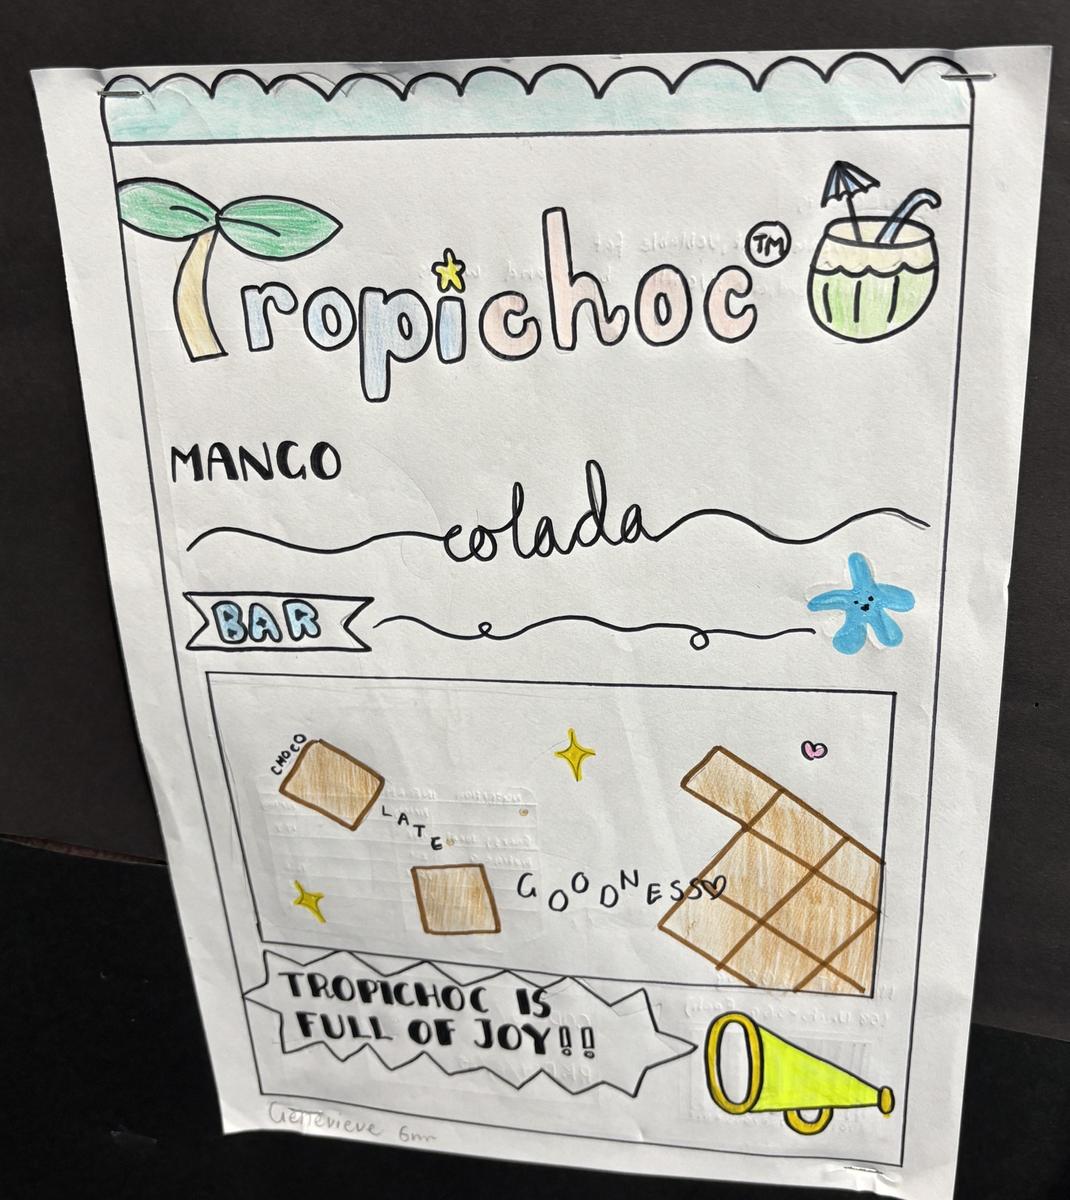 Tropichoc TM
MANGO
colada
BAR
CHOCO
LATE
GOODNESS
TROPICHOC IS
FULL OF JOY!!
Genevieve 6m